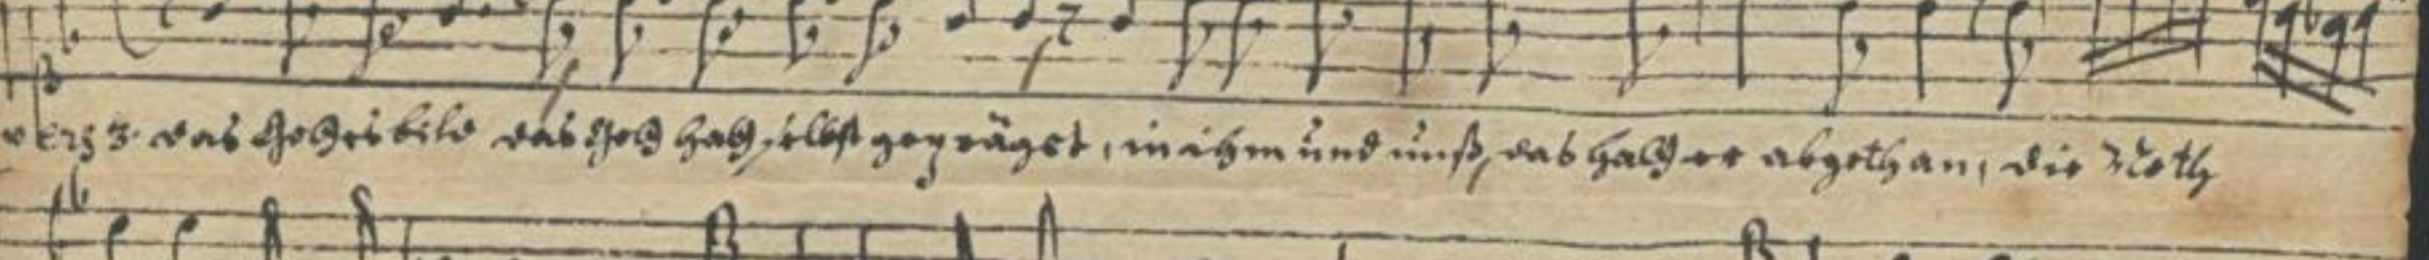 vers 3. das Gottes bild das Gott hatt selbst geprägt, in ihm und unß, das hatt er abgethan, die Noth